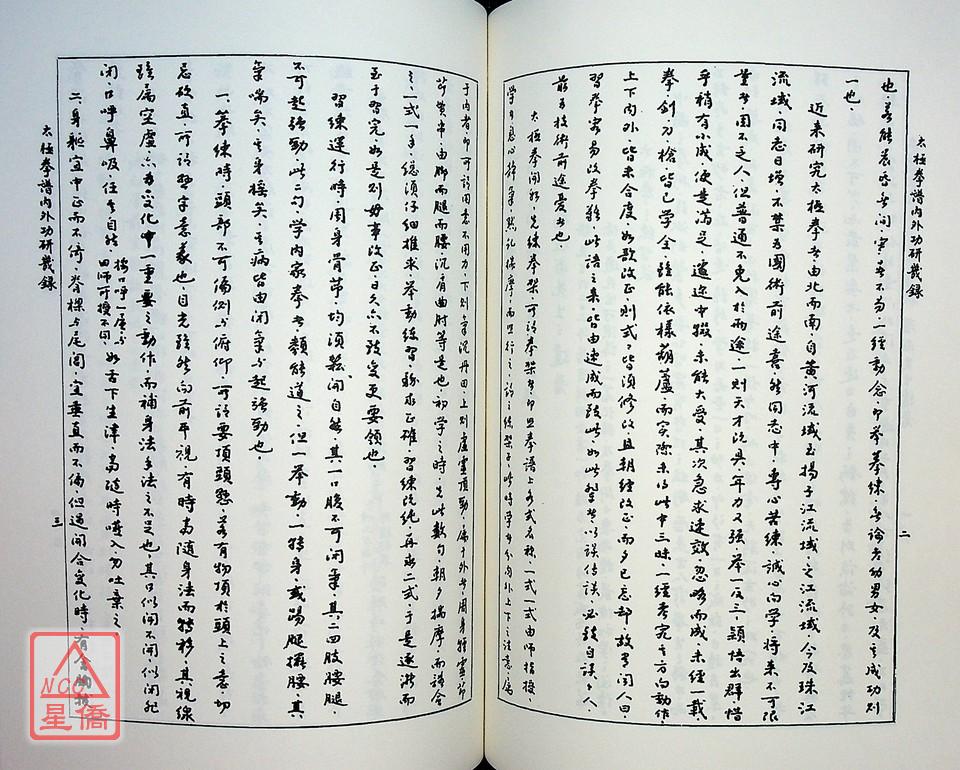 太極拳譜內外功研幾錄
二
也、若能晨昏無間、寒暑不易、一經動念、即舉摹練、無論老幼男女、及其成功則
一也、
近來研究太極拳者、由北而南、自黃河流域至揚子江流域、之江流域、今及珠江
流域、同志日增、不禁為國術前途喜、然同志中、專心苦練、誠心向學、將來不可限
量者、固不乏人、但普通不免入於兩途、一則天才沒具、年力又強、舉一反三、穎悟出群、惜
乎稍有小成、便是滿足、遽途中輟、未能大受、其次急求速效、忽略而成、未經一載、
拳、劍、刀、槍、皆已學全、雖能依樣葫蘆、而實際未得此中三昧、一經考究其方向動作、
上下內外、皆未合度、如欲改正、則式式皆須修改、且朝經改正、而夕已忘卻、故常聞人曰、
習拳容易改拳難、此語之來、皆由速成而致此、如此輩者、以誤傳誤、必致自誤誤人、
最為技術前途憂者也、
太極拳開始、先練拳架、所謂拳架者、即照拳譜上各式名稱、一式一式由師指授、
學者悉心靜氣、默記揣摩而照行之、謂之練架子、此時學者分內外上下之注意、屬
于內者、即所謂用意不用力、下則氣沉丹田、上則虛靈頂勁、屬于外者、周身輕靈、節
節貫串、由腳而腿而腰、沉肩曲肘等是也、初學之時、先此數句、朝夕揣摩、而體會
之、一式一手、總須仔細推求、舉動練習、務求正確、習練既純、再求二式、于是逐漸而
至于習完、如是則毋事改正、日久亦不致變更要領也、
習練運行時、周身骨節、均須鬆開自然、其一口腹不可閉氣、其二四肢腰腿、
不可起強勁、此二句學內家拳者、類能道之、但一舉動、一轉身、或踢腿擺腰、其
氣喘矣、其身搖矣、其病皆由閉氣與起強勁也、
一、摹練時、頭部不可偏側與俯仰、所謂要頂頭懸、若有物頂於頭上之意、切
忌硬直、所謂懸字意義也、目光雖然向前平視、有時當隨身法而轉移、其視線
雖屬空虛、亦為變化中一重要之動作、而補身法手法之不足也、其口似開不開、似閉非
閉、口呼鼻吸、任其自然、如舌下生津、當隨時嚥入、勿吐棄之、
二、身軀宜中正而不倚、脊梁與尾閭、宜垂直而不偏、但遇開合變化時、有含胸拔
太極拳譜內外功研幾錄
三
NCC
星僑